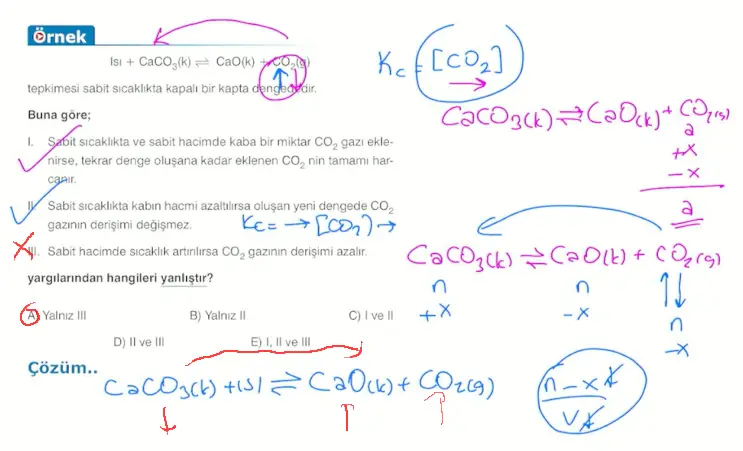 Örnek
Isı + CaCO₃(k) ⇌ CaO(k) + CO₂(g)
tepkimesi sabit sıcaklıkta kapalı bir kapta dengededir.
Buna göre;
I. Sabit sıcaklıkta ve sabit hacimde kaba bir miktar CO₂ gazı ekle-
nirse, tekrar denge oluşana kadar eklenen CO₂ nin tamamı har-
canır.
II. Sabit sıcaklıkta kabın hacmi azaltılırsa oluşan yeni dengede CO₂
gazının derişimi değişmez.
Kc = → [CO₂] →
III. Sabit hacimde sıcaklık artırılırsa CO₂ gazının derişimi azalır.
yargılarından hangileri yanlıştır?
A) Yalnız III B) Yalnız II C) I ve II
D) II ve III E) I, II ve III
Çözüm..
CaCO₃(k) + ISI ⇌ CaO(k) + CO₂(g)
Kc = [CO₂]
CaCO₃(k) ⇌ CaO(k) + CO₂(g)
a
+x
-x
a
CaCO₃(k) ⇌ CaO(k) + CO₂(g)
n n n
+x -x -x
n-x↓
V↓